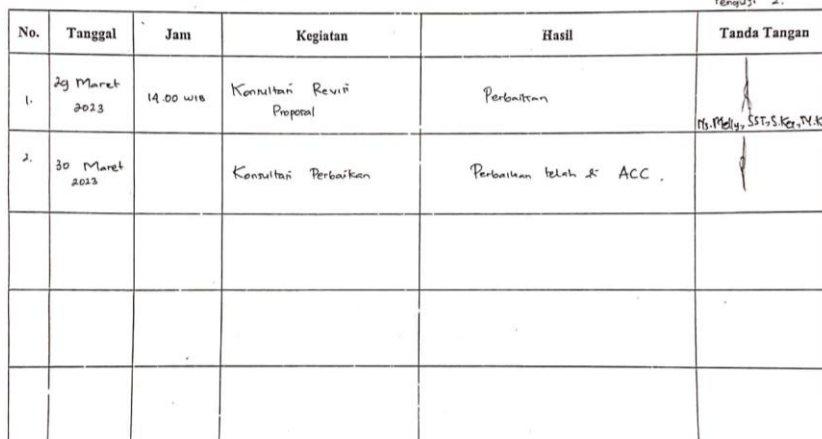 Penguji 2.
No. Tanggal Jam Kegiatan Hasil Tanda Tangan
1. 29 Maret 2023 14.00 WIB Konsultasi Revisi Proposal Perbaikan
Ns. Melly, SST, S.Kep, M.K
2. 30 Maret 2023 Konsultasi Perbaikan Perbaikan telah di ACC.